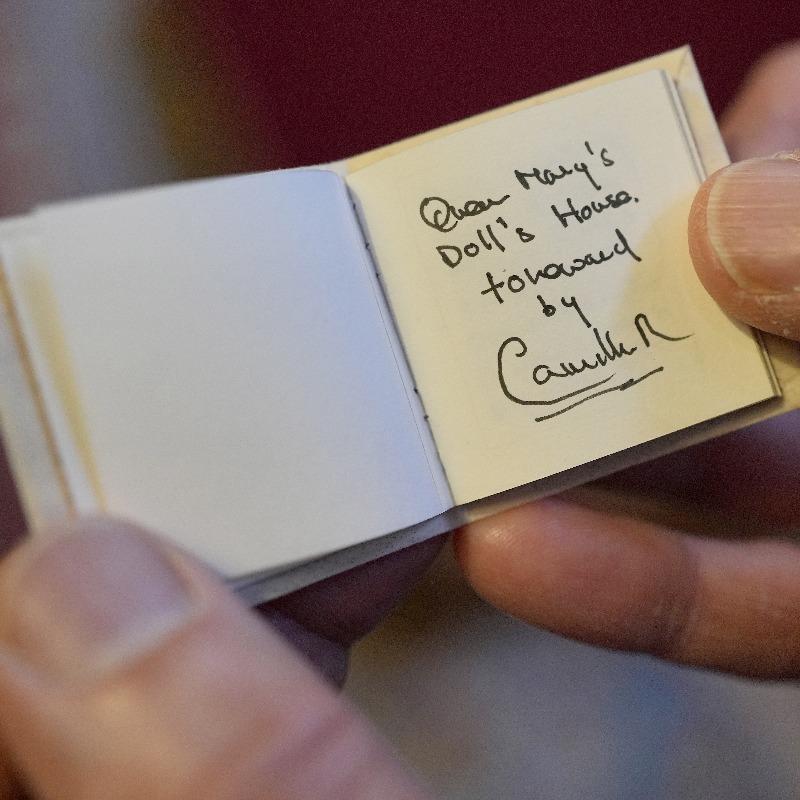 Queen Mary's
Doll's House.
foreword
by
Camilla R